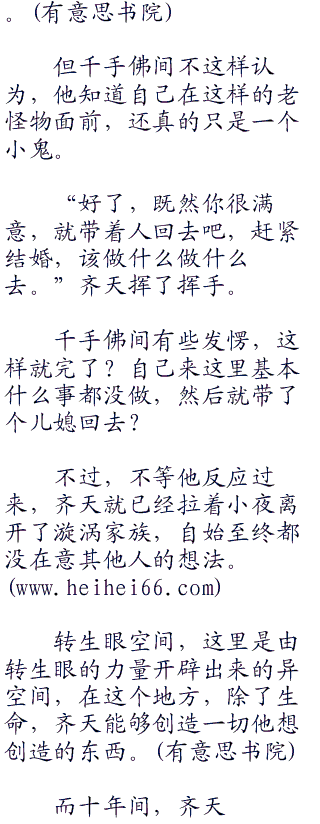 。(有意思书院)
但千手佛间不这样认
为，他知道自己在这样的老
怪物面前，还真的只是一个
小鬼。
“好了，既然你很满
意，就带着人回去吧，赶紧
结婚，该做什么做什么
去。”齐天挥了挥手。
千手佛间有些发愣，这
样就完了？自己来这里基本
什么事都没做，然后就带了
个儿媳回去？
不过，不等他反应过
来，齐天就已经拉着小夜离
开了漩涡家族，自始至终都
没在意其他人的想法。
(www.heihei66.com)
转生眼空间，这里是由
转生眼的力量开辟出来的异
空间，在这个地方，除了生
命，齐天能够创造一切他想
创造的东西。(有意思书院)
而十年间，齐天